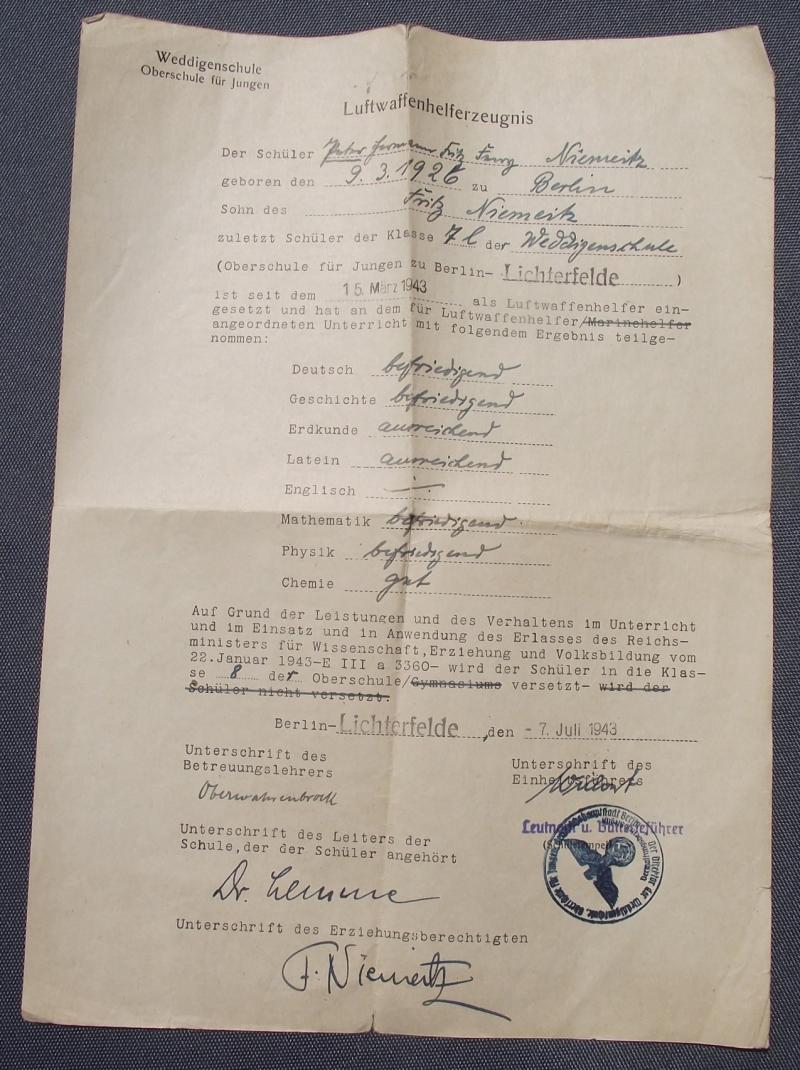 Weddigenschule
Oberschule für Jungen
Luftwaffenhelferzeugnis
Der Schüler Peter Hermann Fritz Niemeitz
geboren den 9. 3. 1926 zu Berlin
Sohn des Fritz Niemeitz
zuletzt Schüler der Klasse 7 l der Weddigenschule
(Oberschule für Jungen zu Berlin- Lichterfelde )
ist seit dem 15. März 1943 als Luftwaffenhelfer ein-
gesetzt und hat an dem für Luftwaffenhelfer/Marinehelfer
angeordneten Unterricht mit folgendem Ergebnis teilge-
nommen:
Deutsch befriedigend
Geschichte befriedigend
Erdkunde ausreichend
Latein ausreichend
Englisch
Mathematik befriedigend
Physik befriedigend
Chemie gut
Auf Grund der Leistungen und des Verhaltens im Unterricht
und im Einsatz und in Anwendung des Erlasses des Reichs-
ministers für Wissenschaft,Erziehung und Volksbildung vom
22.Januar 1943-E III a 3360- wird der Schüler in die Klas-
se 8 der Oberschule/Gymnasiums versetzt- wird der
Schüler nicht versetzt.
Berlin-Lichterfelde, den - 7. Juli 1943
Unterschrift des
Betreuungslehrers
Oberwahrenbrock
Unterschrift des
Einheitsführers
Leutnant u. Batterieführer
(Schulstempel)
Unterschrift des Leiters der
Schule,der der Schüler angehört
Dr. Lemme
Unterschrift des Erziehungsberechtigten
F. Niemeitz